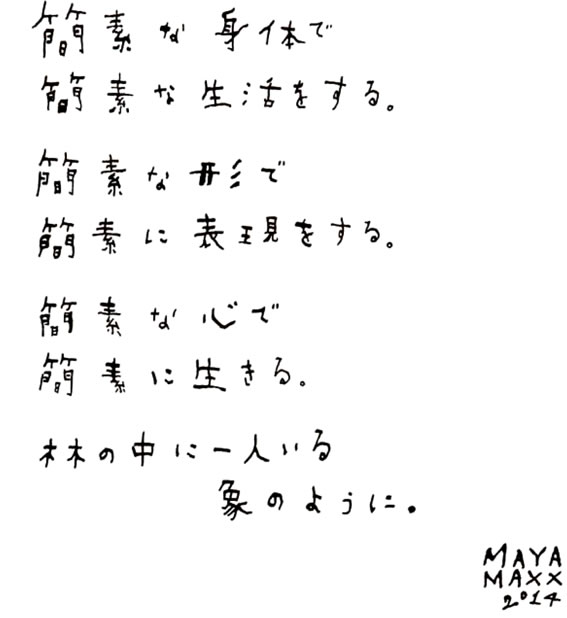 簡素な身体で
簡素な生活をする。
簡素な形で
簡素に表現をする。
簡素な心で
簡素に生きる。
林の中に一人いる
象のように。
MAYA
MAXX
2014